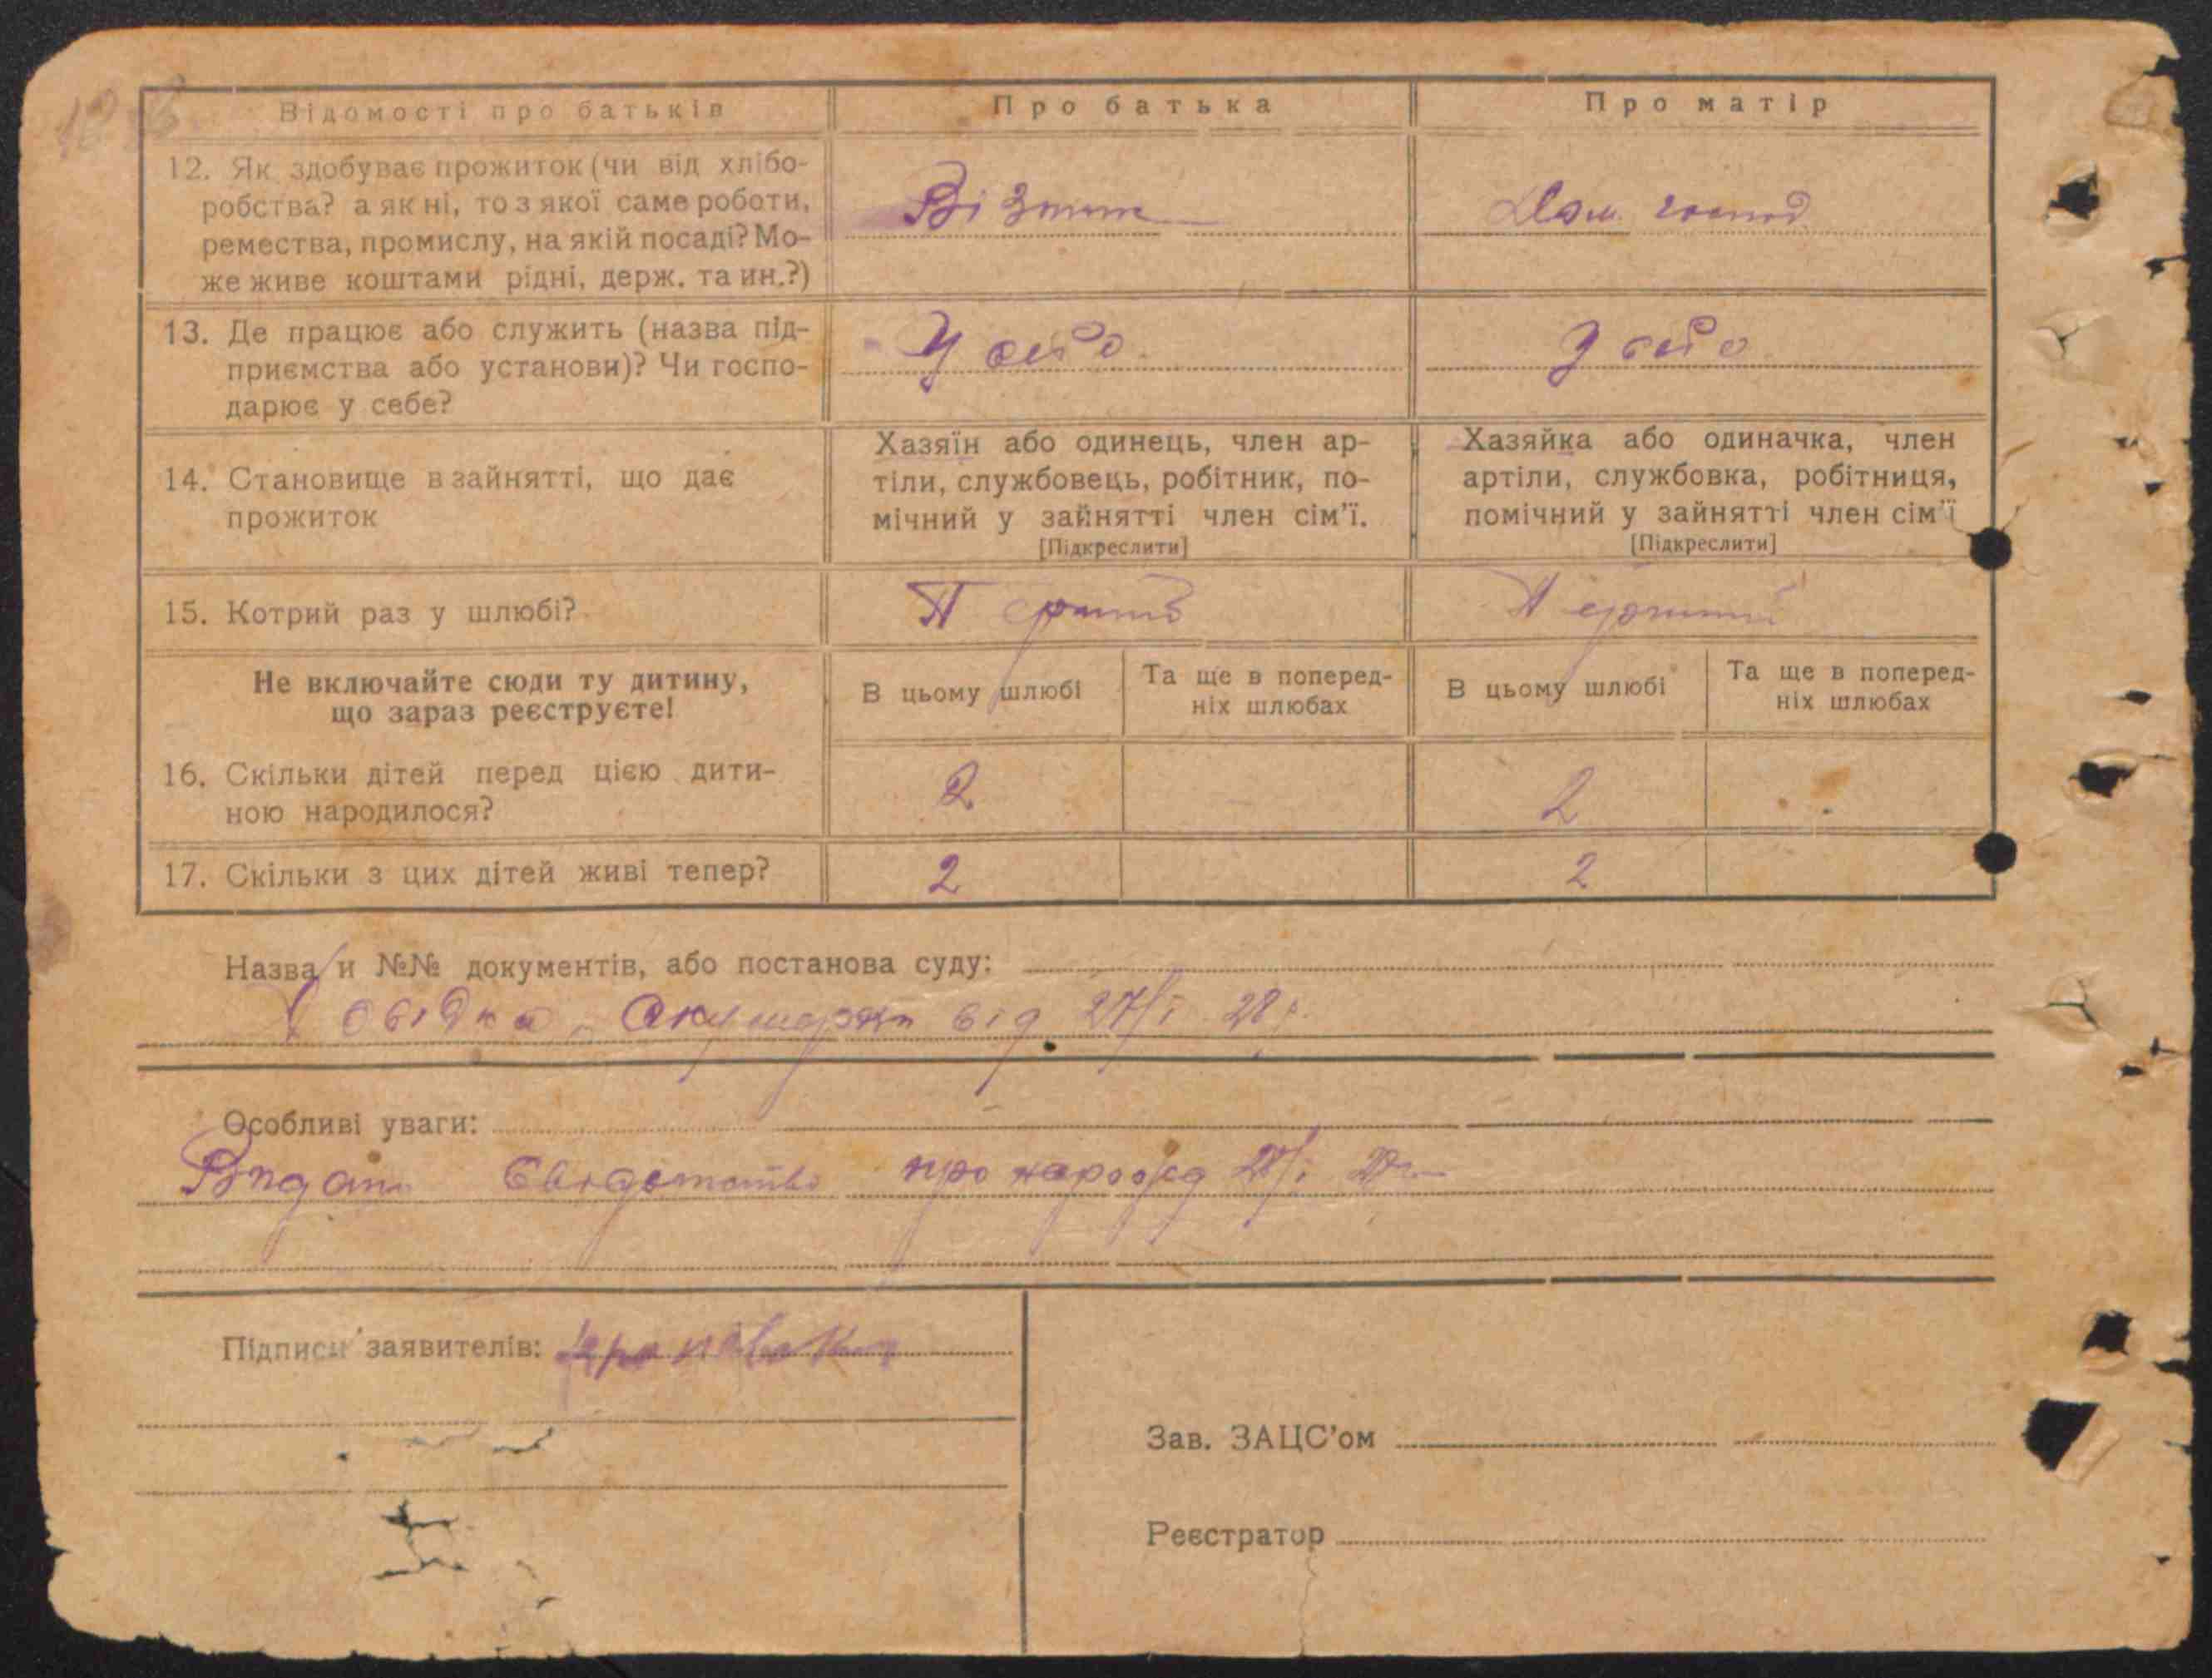 Відомості про батьків
Про батька
Про матір
12. Як здобуває прожиток (чи від хлібо-
робства? а як ні, то з якої саме роботи,
ремества, промислу, на якій посаді? Мо-
же живе коштами рідні, держ. та ин.?)
Візник
Дом. господ
13. Де працює або служить (назва під-
приємства або установи)? Чи госпо-
дарює у себе?
У себе
У себе
14. Становище в зайнятті, що дає
прожиток
Хазяїн або одинець, член ар-
тіли, службовець, робітник, по-
мічний у зайнятті член сім'ї.
[Підкреслити]
Хазяйка або одиначка, член
артіли, службовка, робітниця,
помічний у зайнятті член сім'ї
[Підкреслити]
15. Котрий раз у шлюбі?
Перший
Перший
Не включайте сюди ту дитину,
що зараз реєструєте!
В цьому шлюбі
Та ще в поперед-
ніх шлюбах
В цьому шлюбі
Та ще в поперед-
ніх шлюбах
16. Скільки дітей перед цією дити-
ною народилося?
2
2
17. Скільки з цих дітей живі тепер?
2
2
Назва и №№ документів, або постанова суду:
Довідка Акушерки від 27/I 28 р.
Особливі уваги:
Видано свідоцтво про народж
Підписи заявителів:
Зав. ЗАЦС'ом
Реєстратор